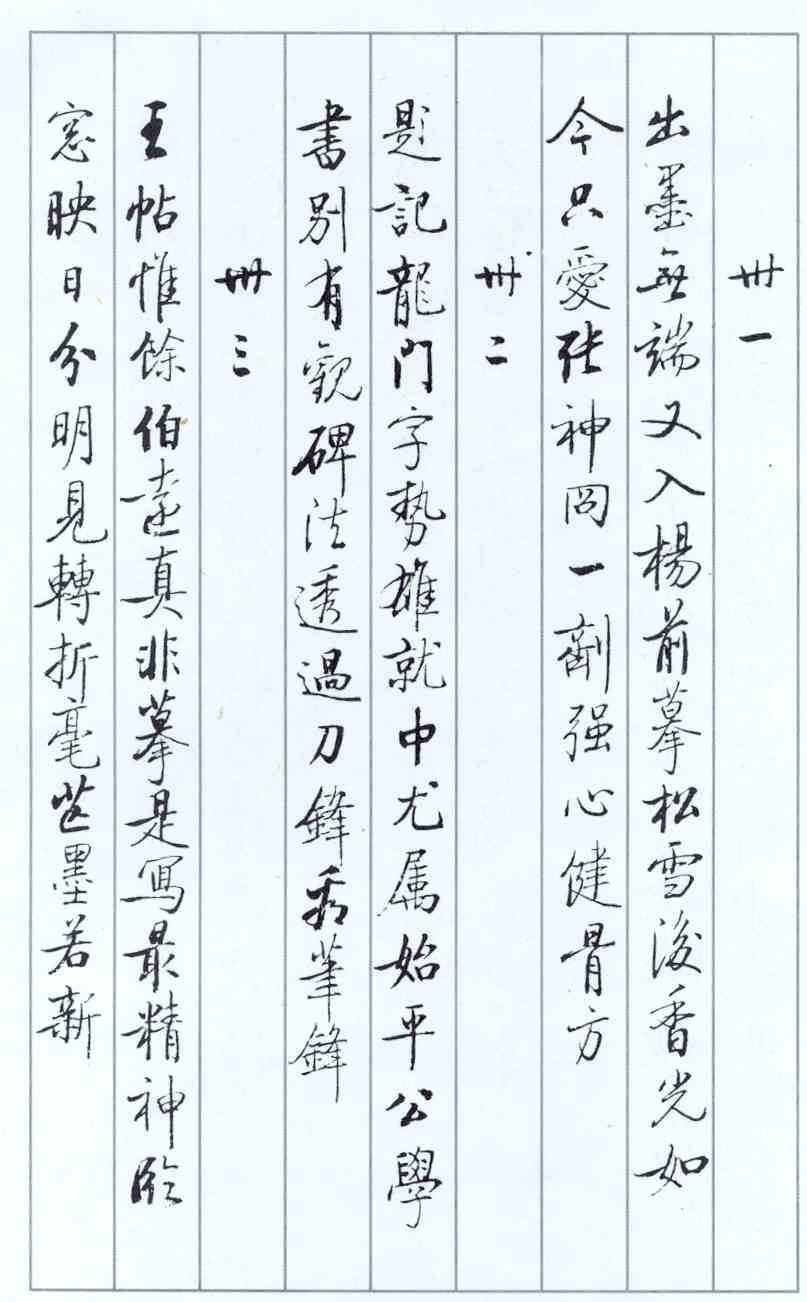 卌一
出墨無端又入楊前摹松雪後香光如
今只愛張神冏一劑强心健骨方
卌二
題記龍門字勢雄就中尤属始平公學
書别有觀碑法透過刀鋒看筆鋒
卌三
王帖惟餘伯遠真非摹是寫最精神臨
窓映日分明見轉折毫芒墨若新